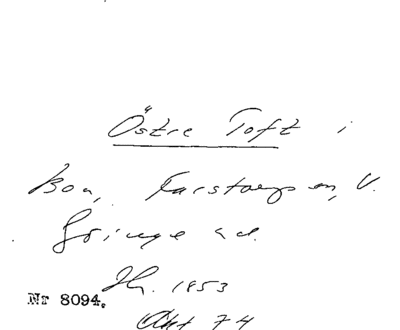 Östre Toft i
Boa, Farstorps sn, V.
Göinge hd.
Hn. 1853
Akt 74
Nr 8094.